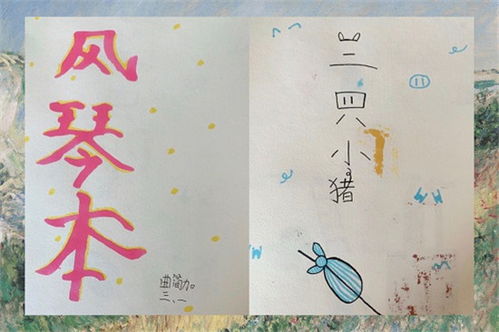 风琴本
曲简加
三、一
三只小猪